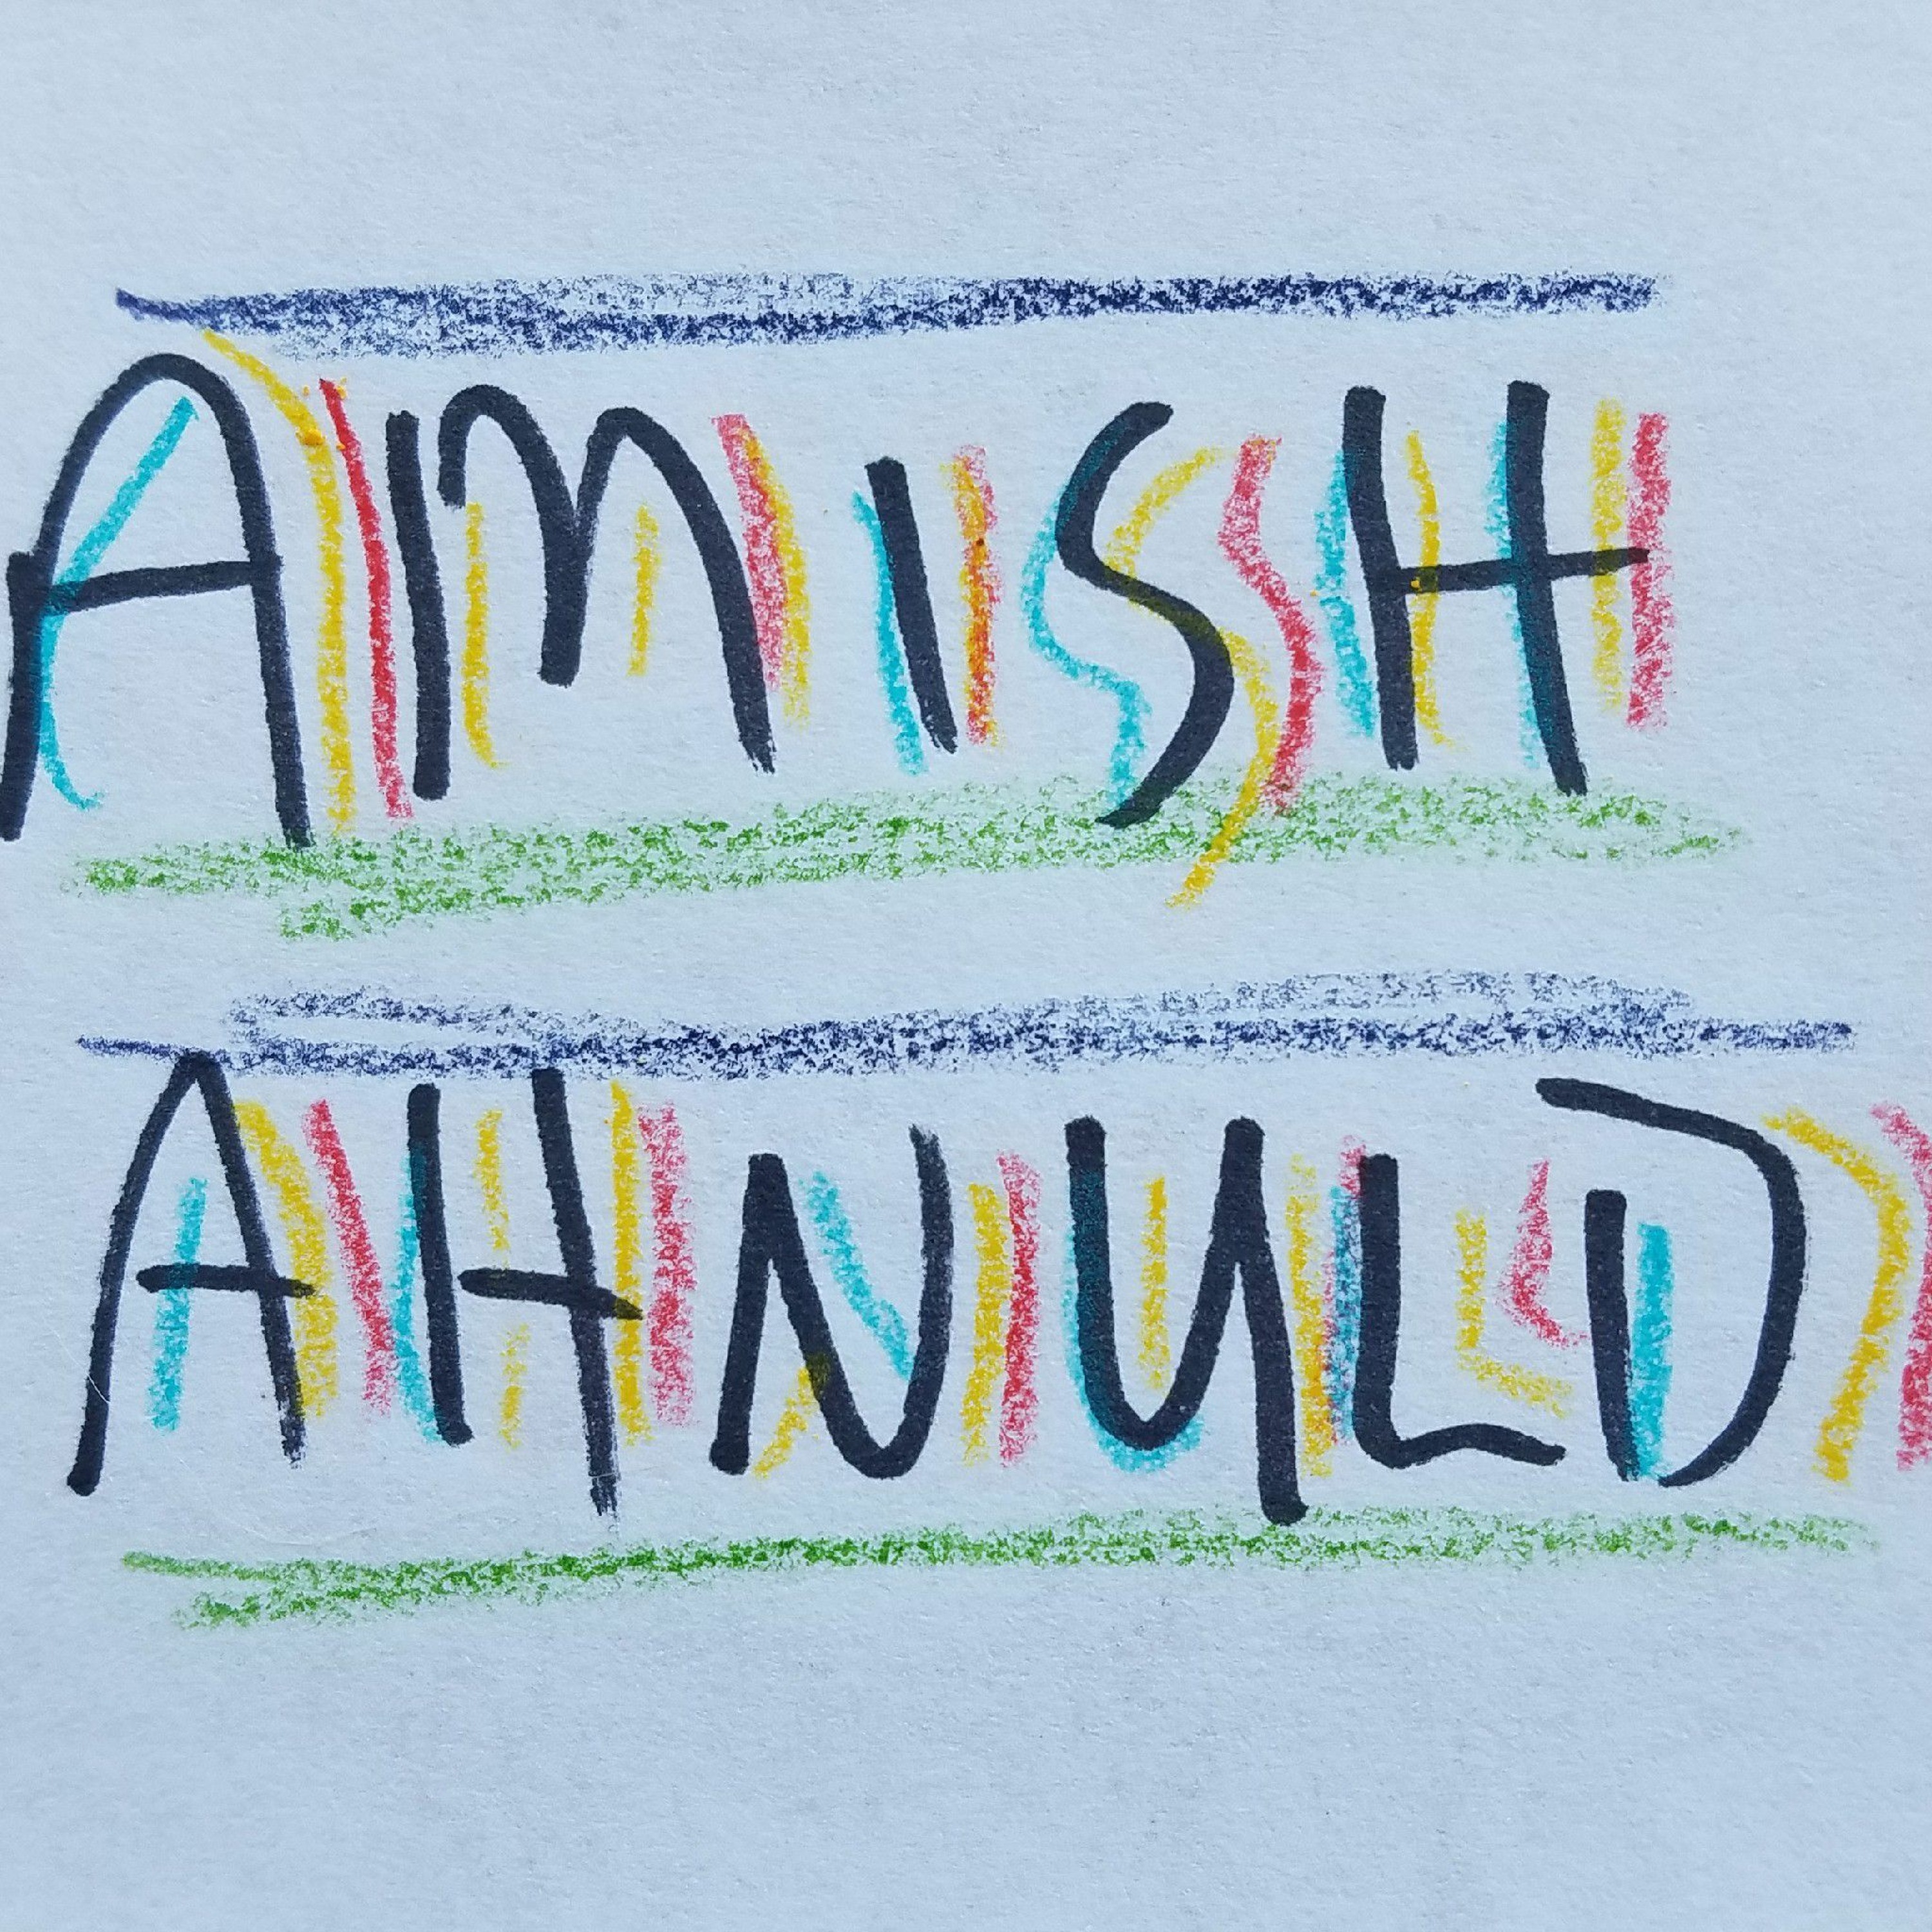 AMISH
AHNULD